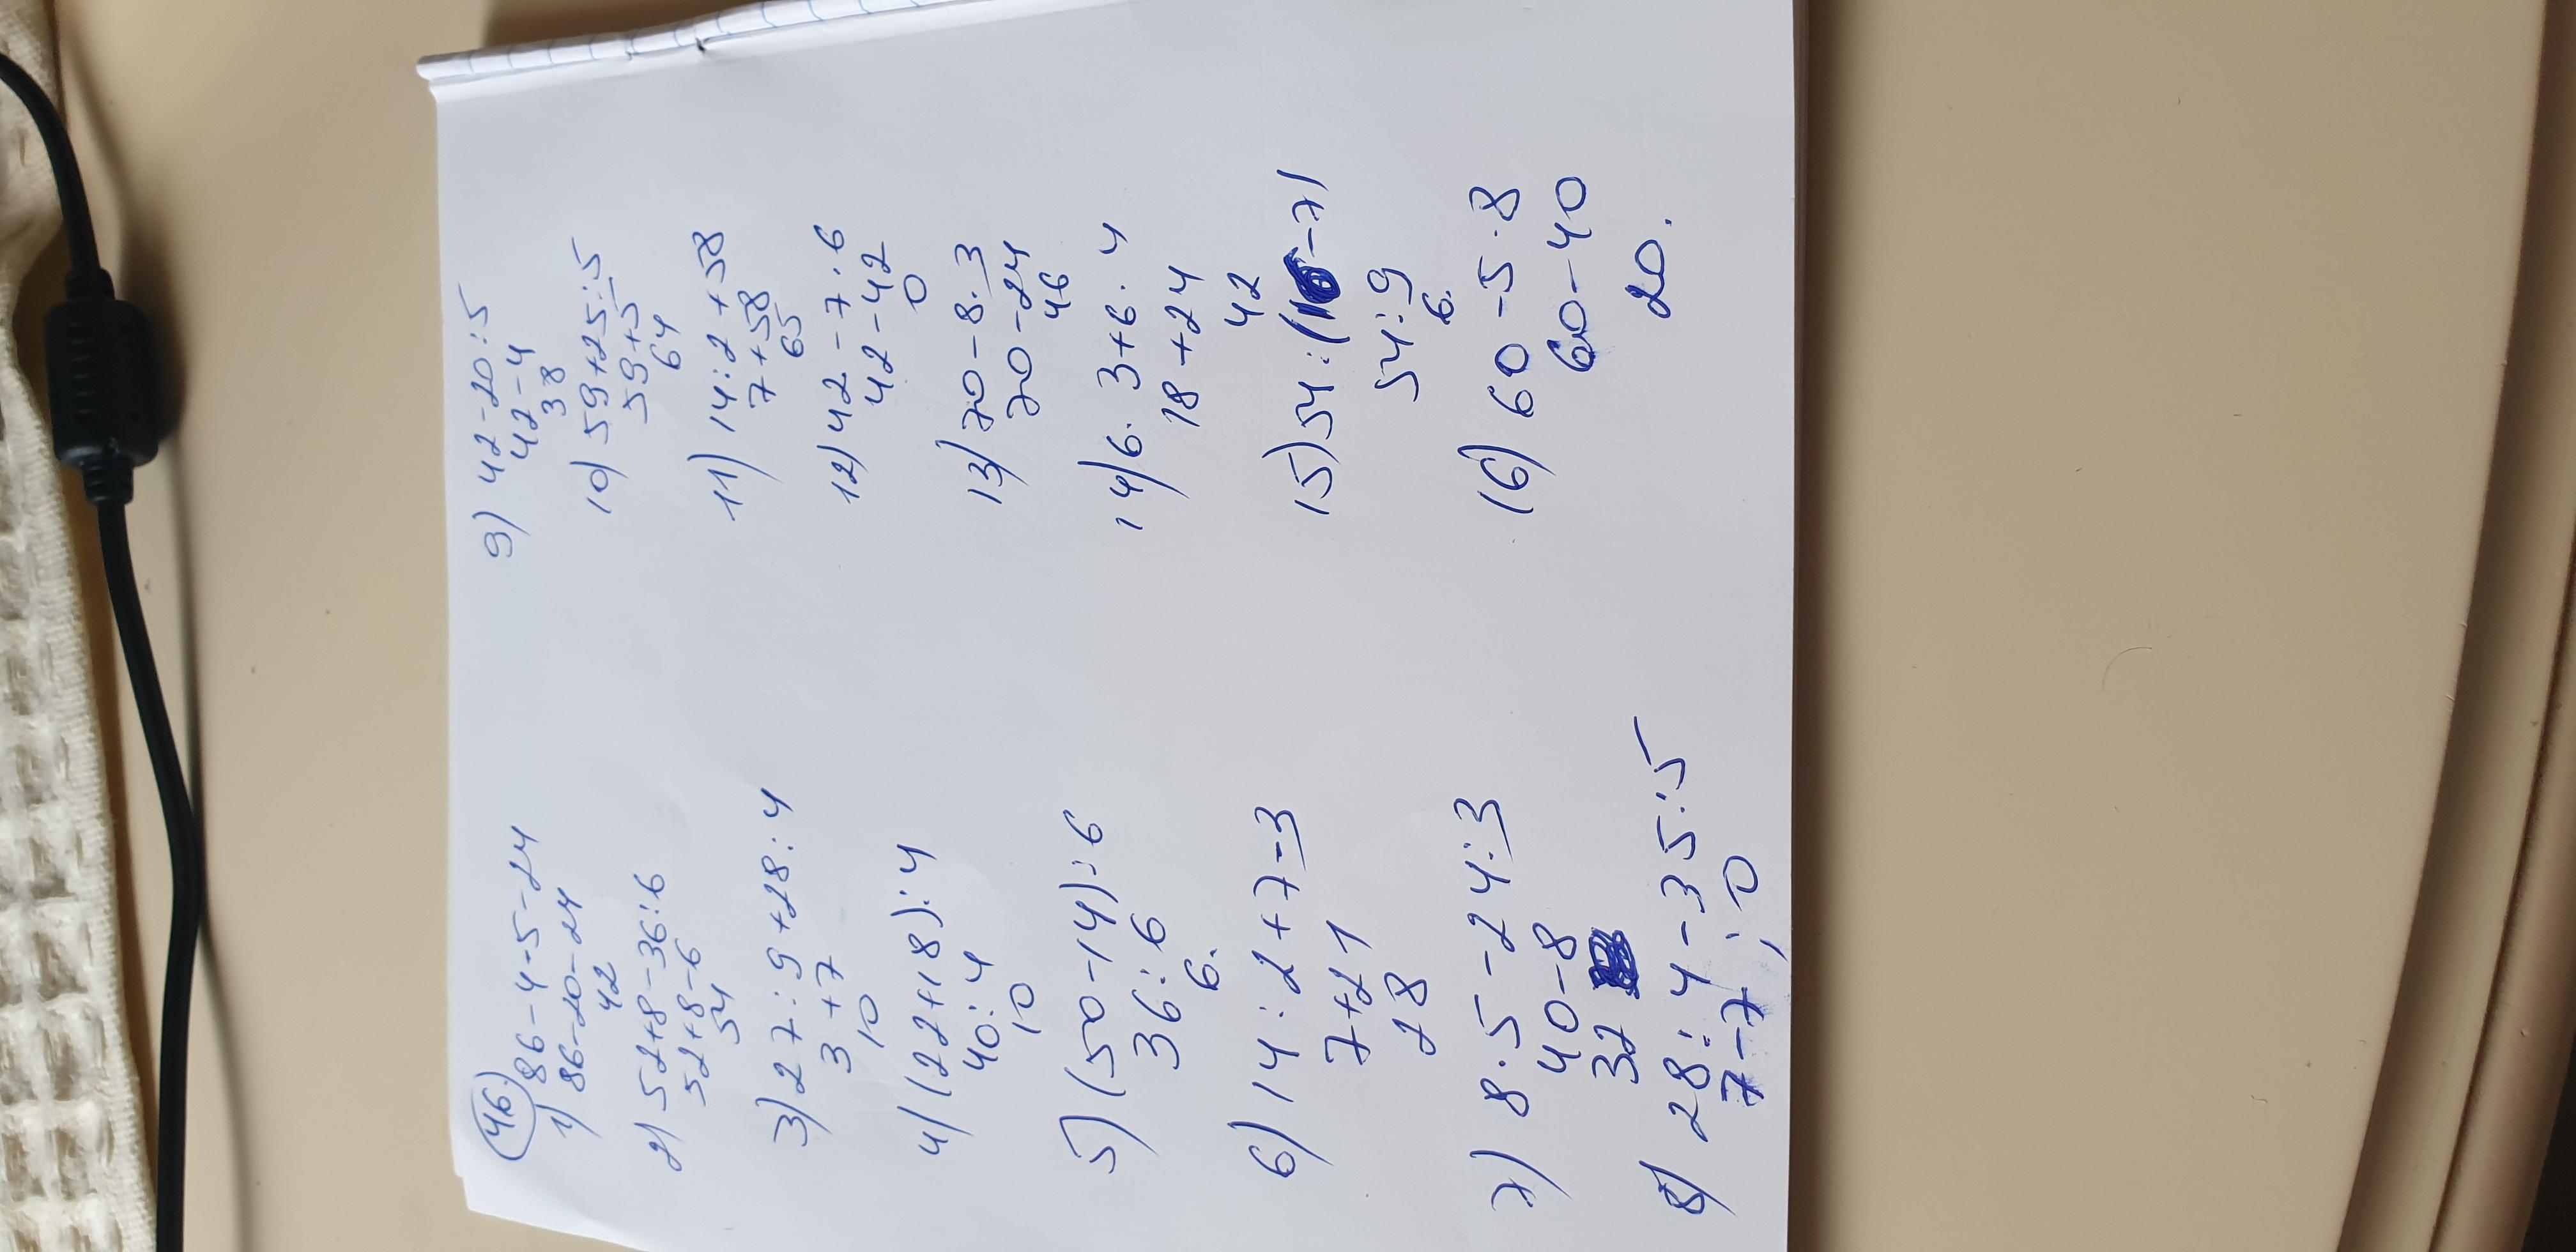 46.
1) 86-4·5-24
86-20-24
42
2) 52+8-36:6
52+8-6
54
3) 27:9+28:4
3+7
10
4) (22+18):4
40:4
10
5) (50-14):6
36:6
6.
6) 14:2+7·3
7+21
28
7) 8·5-24:3
40-8
32
8) 28:4-35:5
7-7; 0
9) 42-20:5
42-4
38
10) 59+25:5
59+5
64
11) 14:2+58
7+58
65
12) 42-7·6
42-42
0
13) 70-8·3
70-24
46
14) 6·3+6·4
18+24
42
15) 54:(16-7)
54:9
6.
16) 60-5·8
60-40
20.